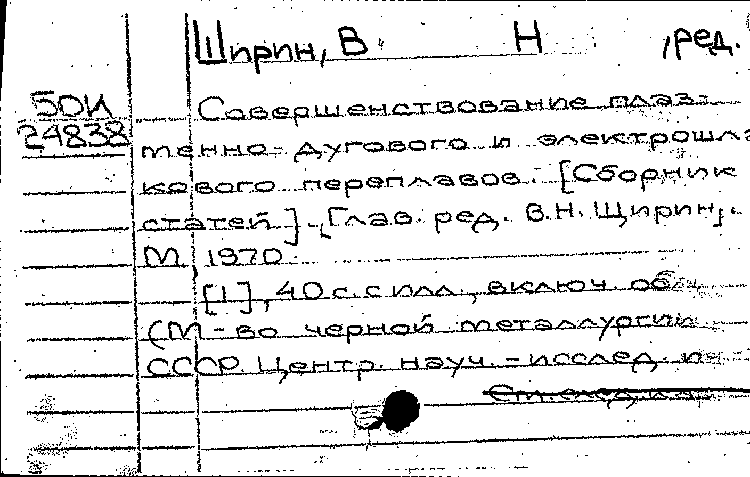 Ширин, В. Н ,ред.
50И
24838
Совершенствование плаз-
менно-дугового и электрошла-
кового переплавов. [Сборник
статей]. [Глав. ред. В.Н. Ширин].
М, 1970.
[1], 40 с. с илл., включ. обл.
(М-во черной металлургии
СССР. Центр. науч.-исслед. ин-
См. след. к.